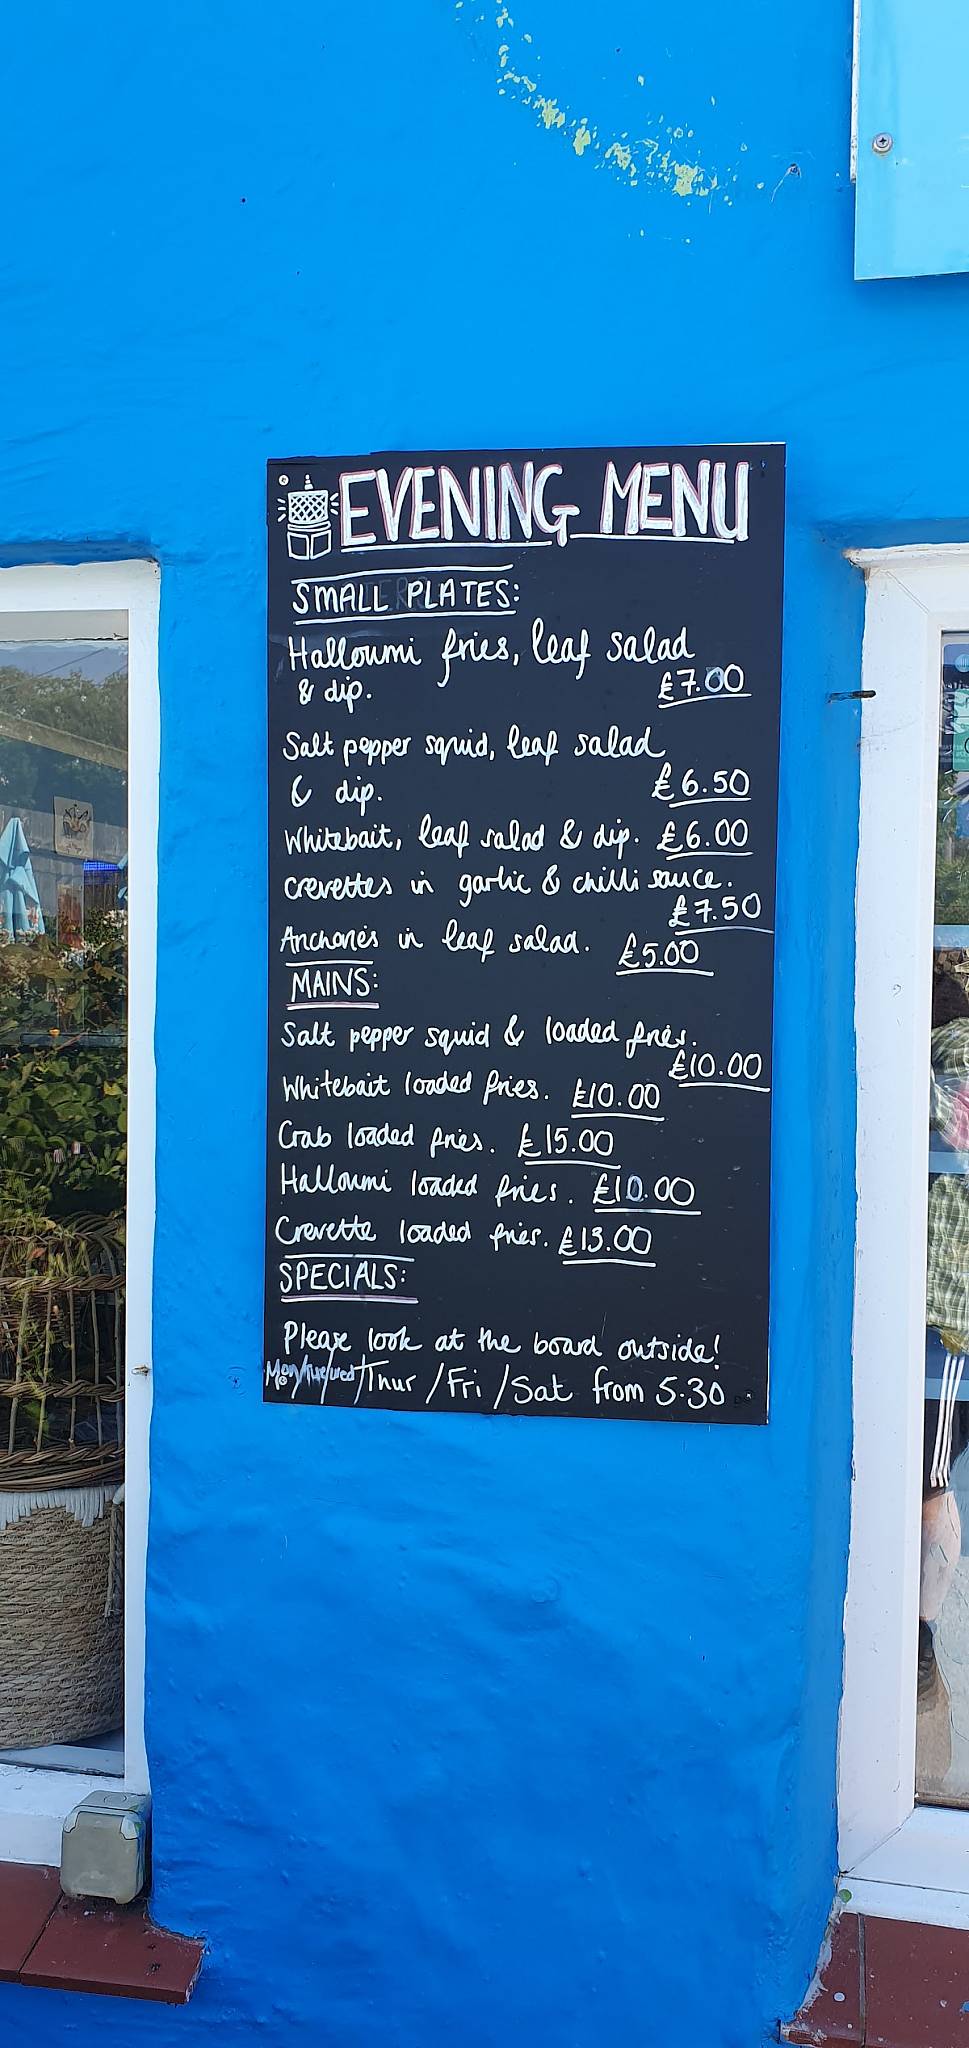 EVENING MENU
SMALL PLATES:
Halloumi fries, leaf salad
& dip. £7.00
Salt pepper squid, leaf salad
& dip. £6.50
Whitebait, leaf salad & dip. £6.00
Crevettes in garlic & chilli sauce.
£7.50
Anchovies in leaf salad. £5.00
MAINS:
Salt pepper squid & loaded fries.
£10.00
Whitebait loaded fries. £10.00
Crab loaded fries. £15.00
Halloumi loaded fries. £10.00
Crevette loaded fries. £13.00
SPECIALS:
Please look at the board outside!
Mon/Tue/wed/Thur/Fri/Sat from 5.30